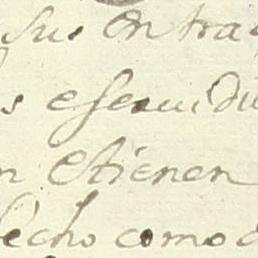 sus entra
s eseguidu
n etienen
echo como